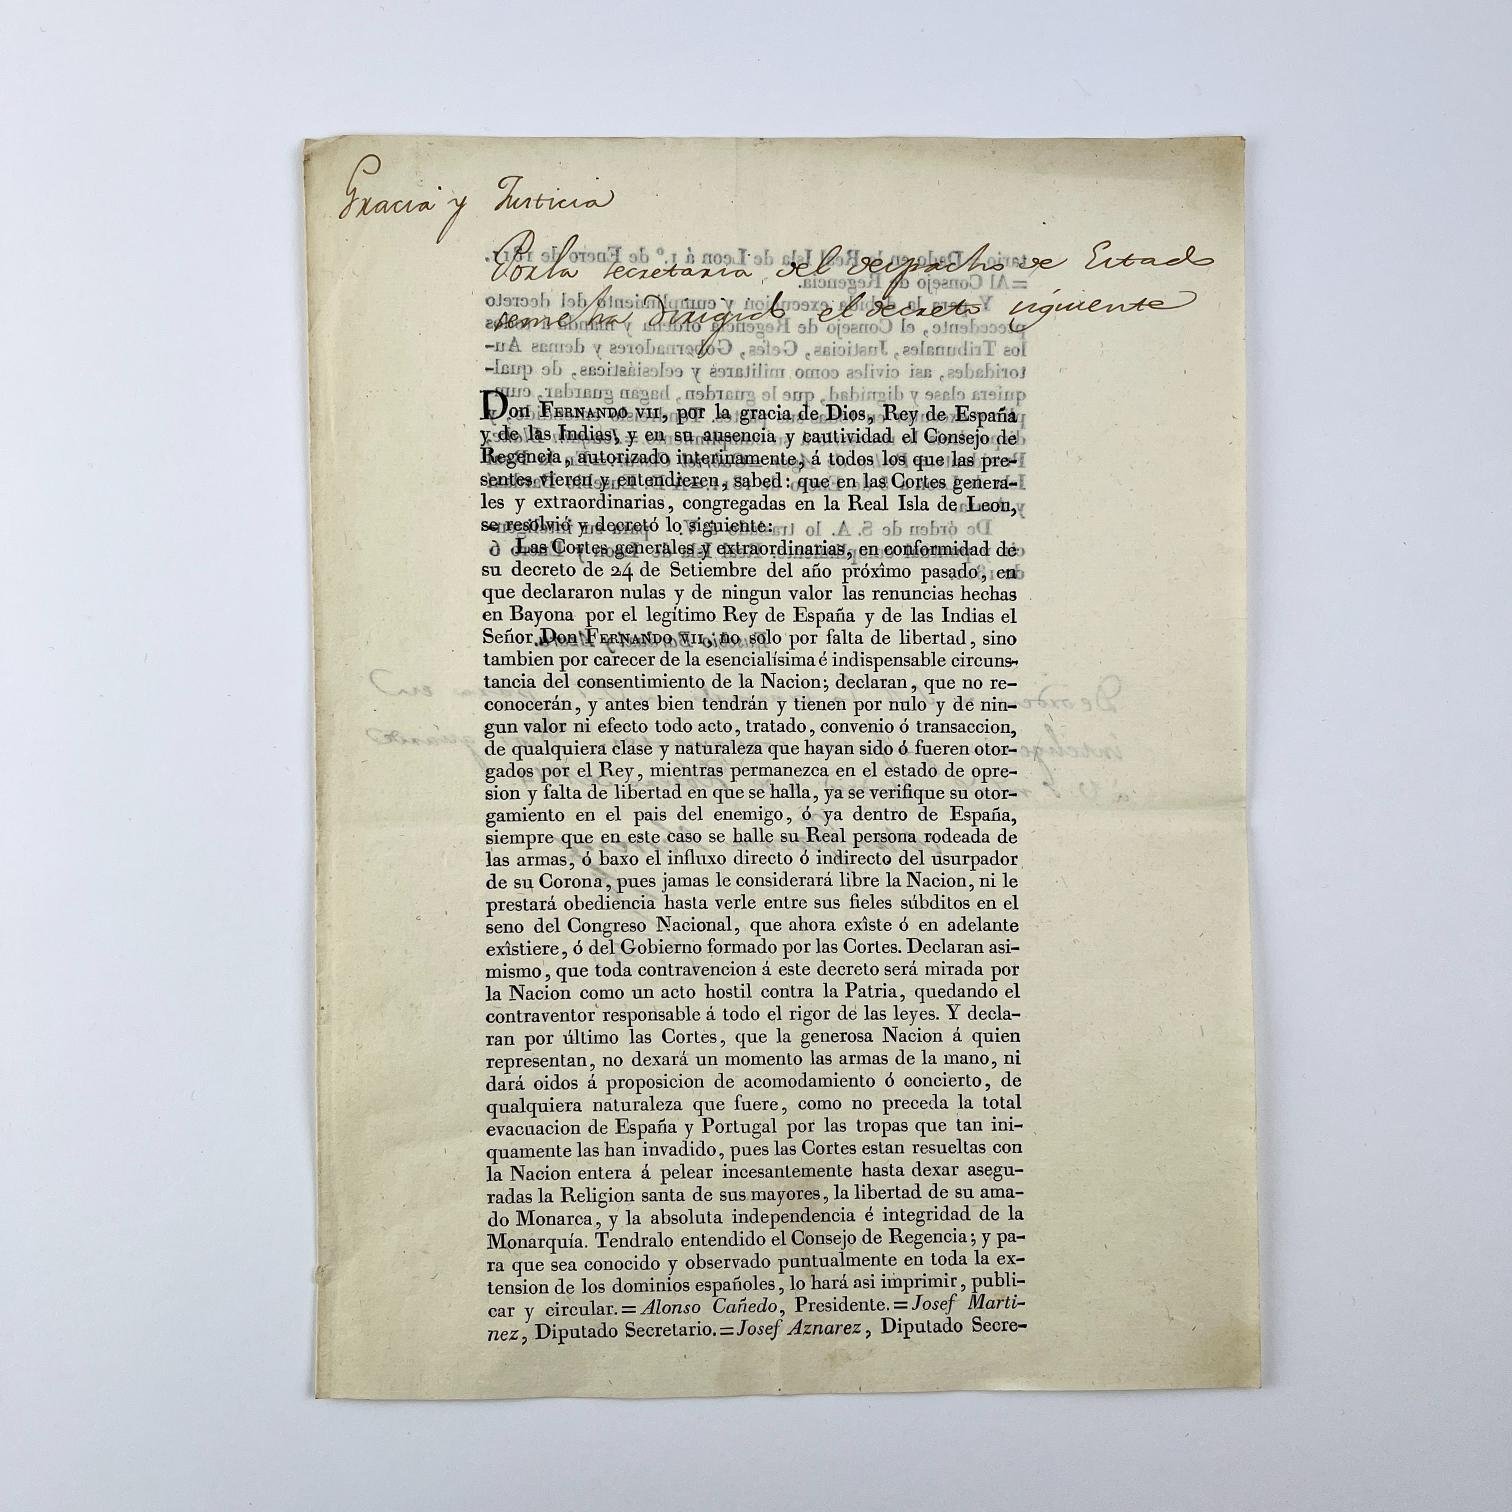 Gracia y Justicia
Por la secretaria del despacho de Estado
seme ha dirigido el decreto siguiente
Don Fernando VII, por la gracia de Dios, Rey de España
y de las Indias, y en su ausencia y cautividad el Consejo de
Regencia, autorizado interinamente, á todos los que las pre-
sentes vieren y entendieren, sabed: que en las Cortes genera-
les y extraordinarias, congregadas en la Real Isla de Leon,
se resolvió y decretó lo siguiente:
Las Cortes generales y extraordinarias, en conformidad de
su decreto de 24 de Setiembre del año próxîmo pasado, en
que declararon nulas y de ningun valor las renuncias hechas
en Bayona por el legítimo Rey de España y de las Indias el
Señor Don Fernando VII, no solo por falta de libertad, sino
tambien por carecer de la esencialísima é indispensable circuns-
tancia del consentimiento de la Nacion; declaran, que no re-
conocerán, y antes bien tendrán y tienen por nulo y de nin-
gun valor ni efecto todo acto, tratado, convenio ó transaccion,
de qualquiera clase y naturaleza que hayan sido ó fueren otor-
gados por el Rey, mientras permanezca en el estado de opre-
sion y falta de libertad en que se halla, ya se verifique su otor-
gamiento en el pais del enemigo, ó ya dentro de España,
siempre que en este caso se halle su Real persona rodeada de
las armas, ó baxo el influxo directo ó indirecto del usurpador
de su Corona, pues jamas le considerará libre la Nacion, ni le
prestará obediencia hasta verle entre sus fieles súbditos en el
seno del Congreso Nacional, que ahora exîste ó en adelante
exîstiere, ó del Gobierno formado por las Cortes. Declaran asi-
mismo, que toda contravencion á este decreto será mirada por
la Nacion como un acto hostil contra la Patria, quedando el
contraventor responsable á todo el rigor de las leyes. Y decla-
ran por último las Cortes, que la generosa Nacion á quien
representan, no dexará un momento las armas de la mano, ni
dará oidos á proposicion de acomodamiento ó concierto, de
qualquiera naturaleza que fuere, como no preceda la total
evacuacion de España y Portugal por las tropas que tan ini-
quamente las han invadido, pues las Cortes estan resueltas con
la Nacion entera á pelear incesantemente hasta dexar asegu-
radas la Religion santa de sus mayores, la libertad de su ama-
do Monarca, y la absoluta independencia é integridad de la
Monarquía. Tendralo entendido el Consejo de Regencia; y pa-
ra que sea conocido y observado puntualmente en toda la ex-
tension de los dominios españoles, lo hará asi imprimir, publi-
car y circular.=Alonso Cañedo, Presidente.=Josef Marti-
nez, Diputado Secretario.=Josef Aznarez, Diputado Secre-